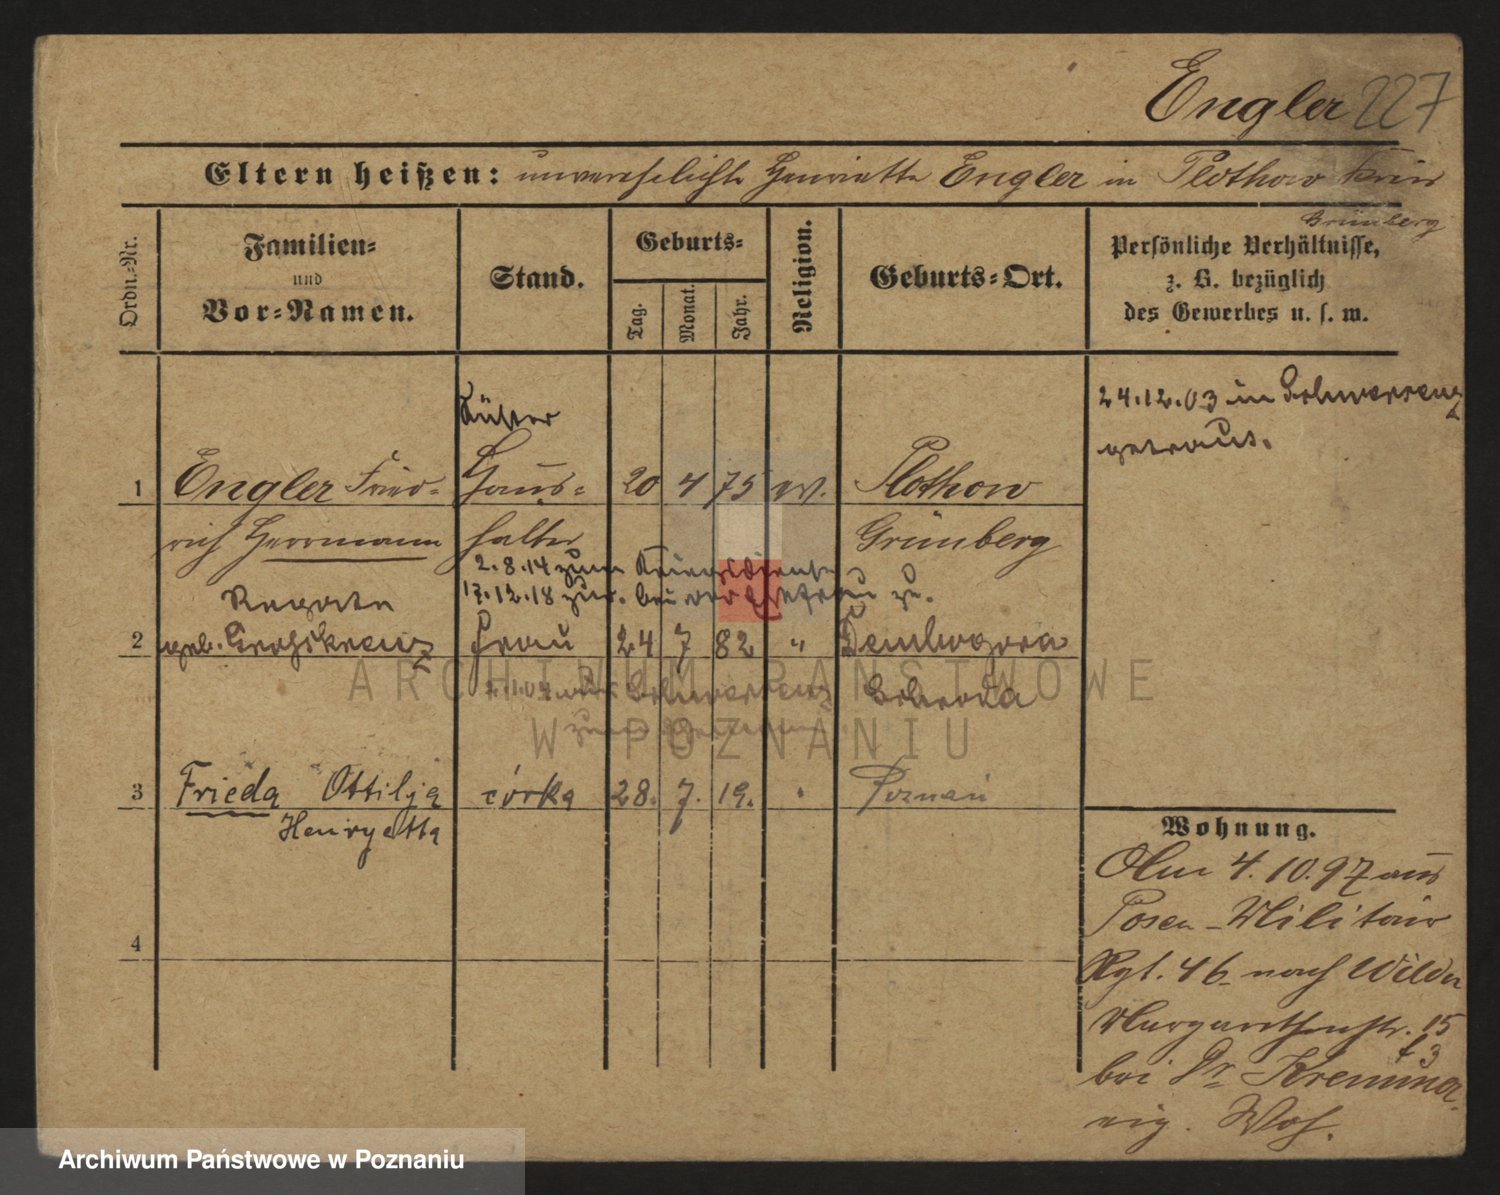 Engler 227
Eltern heißen: unverehelichte Henriette Engler in Plothow Kreis
Grünberg
Ordn.-Nr.
Familien-
und
Vor-Namen.
Stand.
Geburts-
Tag.
Monat.
Jahr.
Religion.
Geburts-Ort.
Persönliche Verhältnisse,
z. B. bezüglich
des Gewerbes u. s. w.
24.12.03 in Schwersenz
getraut.
Küster
1 Engler Fried- Haus- 20 4 75 ev. Plothow
rich Herrmann halter Grünberg
2.8.14 zum Kriegsdienst
17.12.18 zur. bei der Ehefrau zu.
2 geb. Frau 24 7 82 " Dembogora
Schwersenz Schroda
3 Frieda Ottilja córka 28. 7. 19. " Poznań
Henryetta
4
Wohnung.
4.10.97 aus
Posen - Militair
Rgt. 46 nach Wilda
Margarethenstr. 15
bei Dr
eig. Woh.
ARCHIWUM PAŃSTWOWE
W POZNANIU
Archiwum Państwowe w Poznaniu